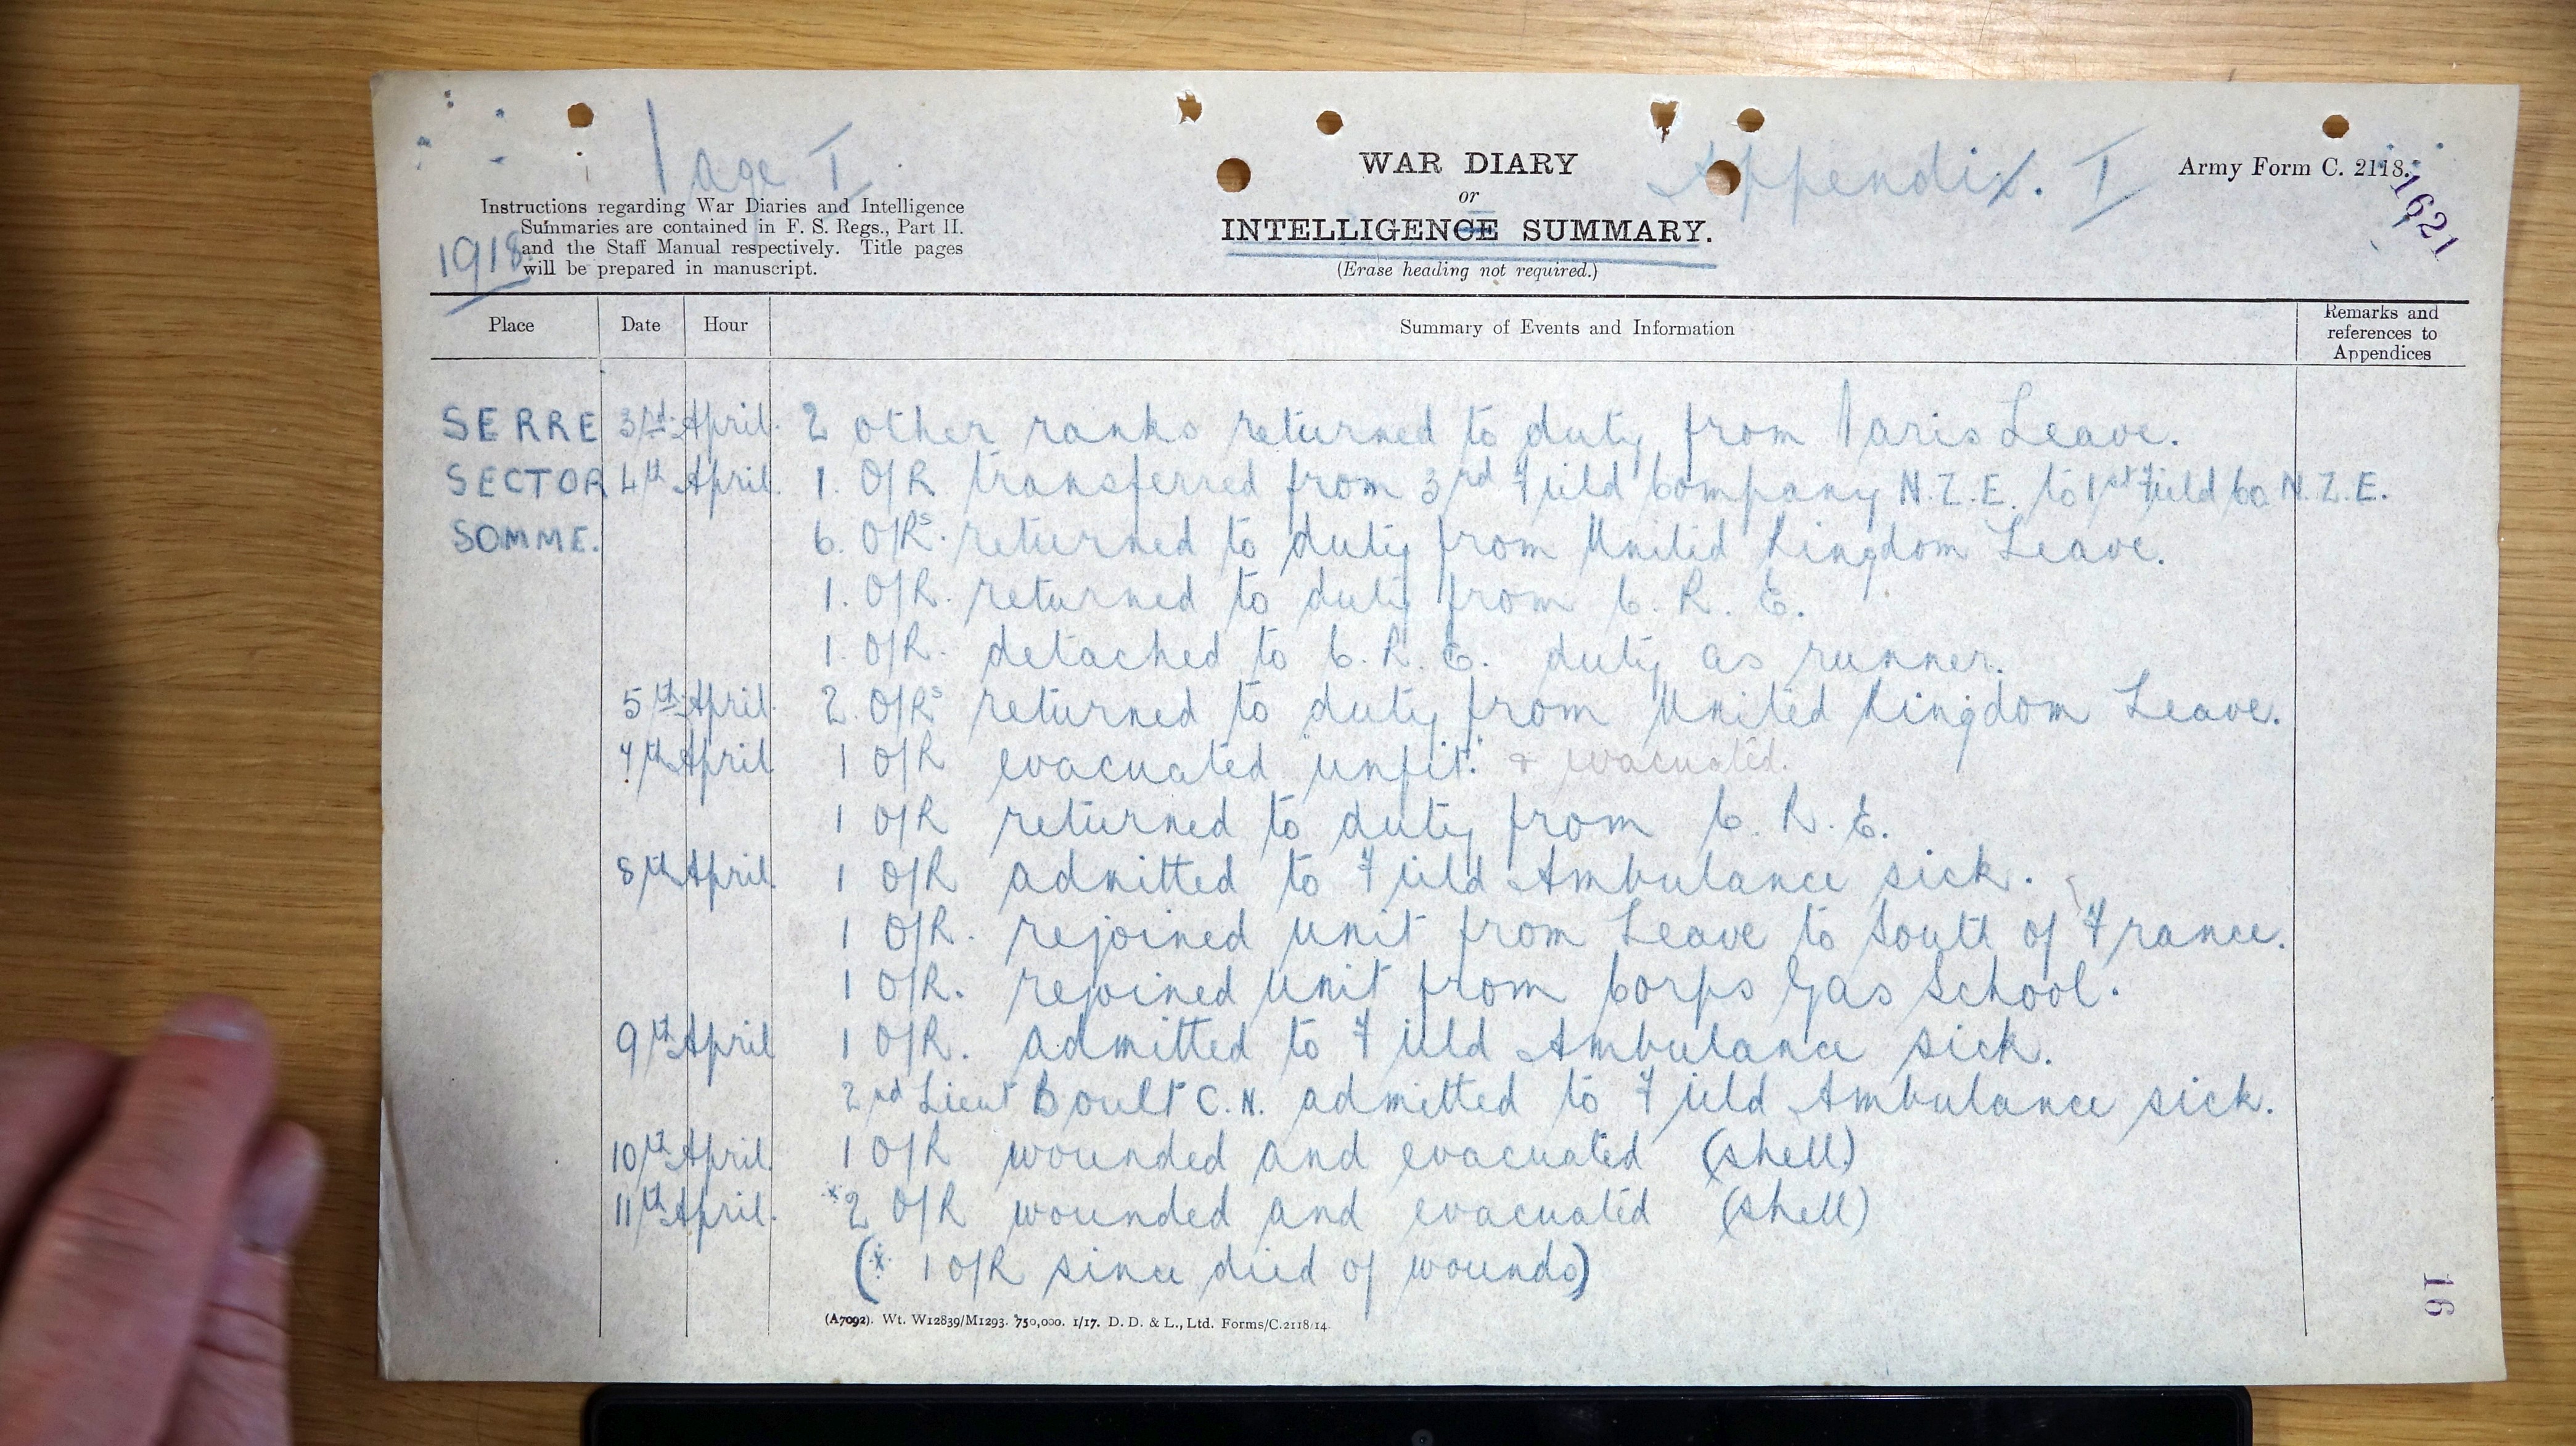 Page I
Appendix. I
WAR DIARY
or
INTELLIGENCE SUMMARY.
(Erase heading not required.)
Army Form C. 2118.
1621
Instructions regarding War Diaries and Intelligence
Summaries are contained in F. S. Regs., Part II.
and the Staff Manual respectively. Title pages
will be prepared in manuscript.
1918.
Place Date Hour Summary of Events and Information Remarks and references to Appendices
SERRE 3rd April. 2 other ranks returned to duty from Paris Leave.
SECTOR 4th April. 1. O/R transferred from 3rd Field Company N.Z.E. to 1st Field Co N.Z.E.
SOMME. 6. O/Rs. returned to duty from United Kingdom Leave.
1. O/R. returned to duty from C. R. E.
1. O/R. detached to C. R. E. duty as runner.
5th April. 2. O/Rs returned to duty from United Kingdom Leave.
7th April 1 O/R evacuated "unfit." & evacuated.
1 O/R returned to duty from C. R. E.
8th April. 1 O/R admitted to Field Ambulance sick.
1 O/R. rejoined unit from Leave to South of France.
1 O/R. rejoined unit from Corps Gas School.
9th April 1 O/R. admitted to Field Ambulance sick.
2nd Lieut Boult C.N. admitted to Field Ambulance sick.
10th April. 1 O/R wounded and evacuated (shell)
11th April. *2 O/R wounded and evacuated (shell)
(* 1 O/R since died of wounds)
(A7092). Wt. W12839/M1293. 750,000. 1/17. D. D. & L., Ltd. Forms/C.2118/14.
16